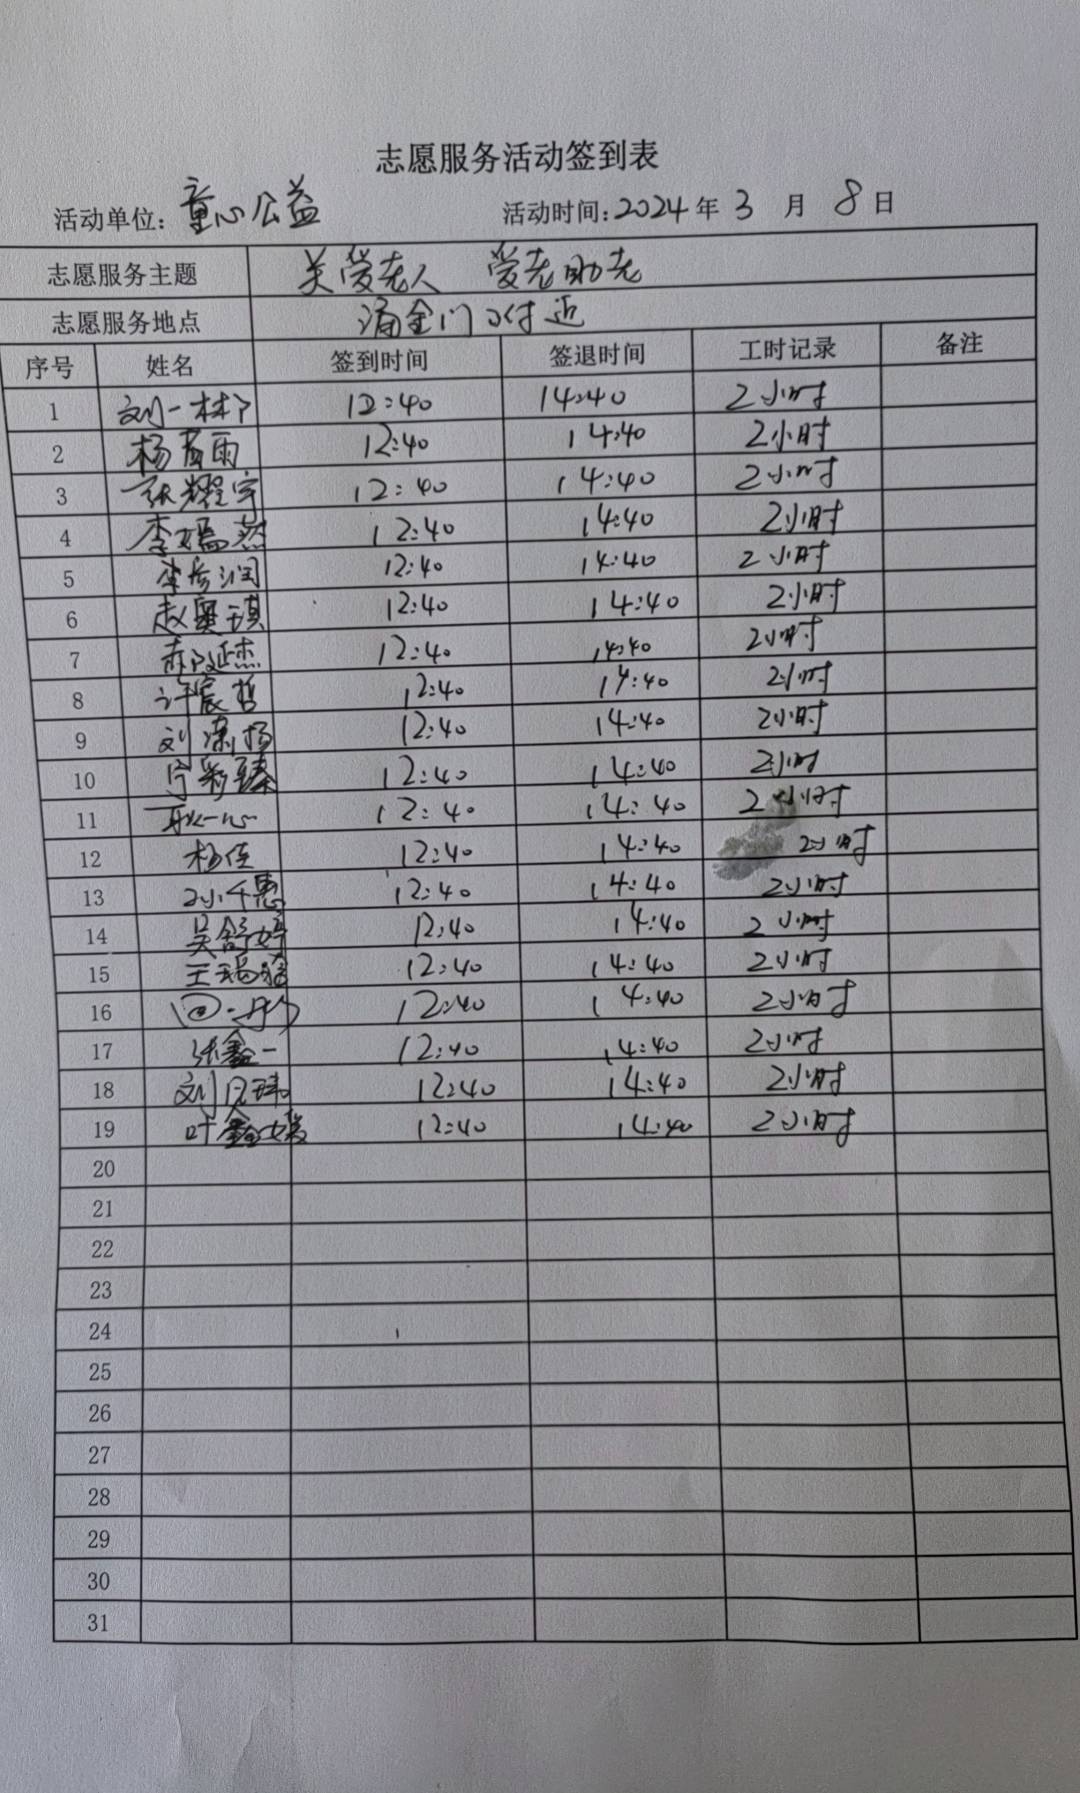 志愿服务活动签到表
活动单位: 童心公益 活动时间: 2024年 3 月 8 日
志愿服务主题 关爱老人 爱老助老
志愿服务地点 涌金门附近
序号 姓名 签到时间 签退时间 工时记录 备注
1 刘一林 12:40 14:40 2小时
2 杨 雨 12:40 14:40 2小时
3 张耀宇 12:40 14:40 2小时
4 李嫣然 12:40 14:40 2小时
5 李彦润 12:40 14:40 2小时
6 赵奥琪 12:40 14:40 2小时
7 郝延杰 12:40 14:40 2小时
8 许宸哲 12:40 14:40 2小时
9 刘潇扬 12:40 14:40 2小时
10 臻 12:40 14:40 2小时
11 耿一心 12:40 14:40 2小时
12 杨佳 12:40 14:40 2小时
13 千惠 12:40 14:40 2小时
14 吴舒婷 12:40 14:40 2小时
15 王瑞 12:40 14:40 2小时
16 12:40 14:40 2小时
17 张鑫一 12:40 14:40 2小时
18 刘 12:40 14:40 2小时
19 叶鑫 12:40 14:40 2小时
20
21
22
23
24
25
26
27
28
29
30
31